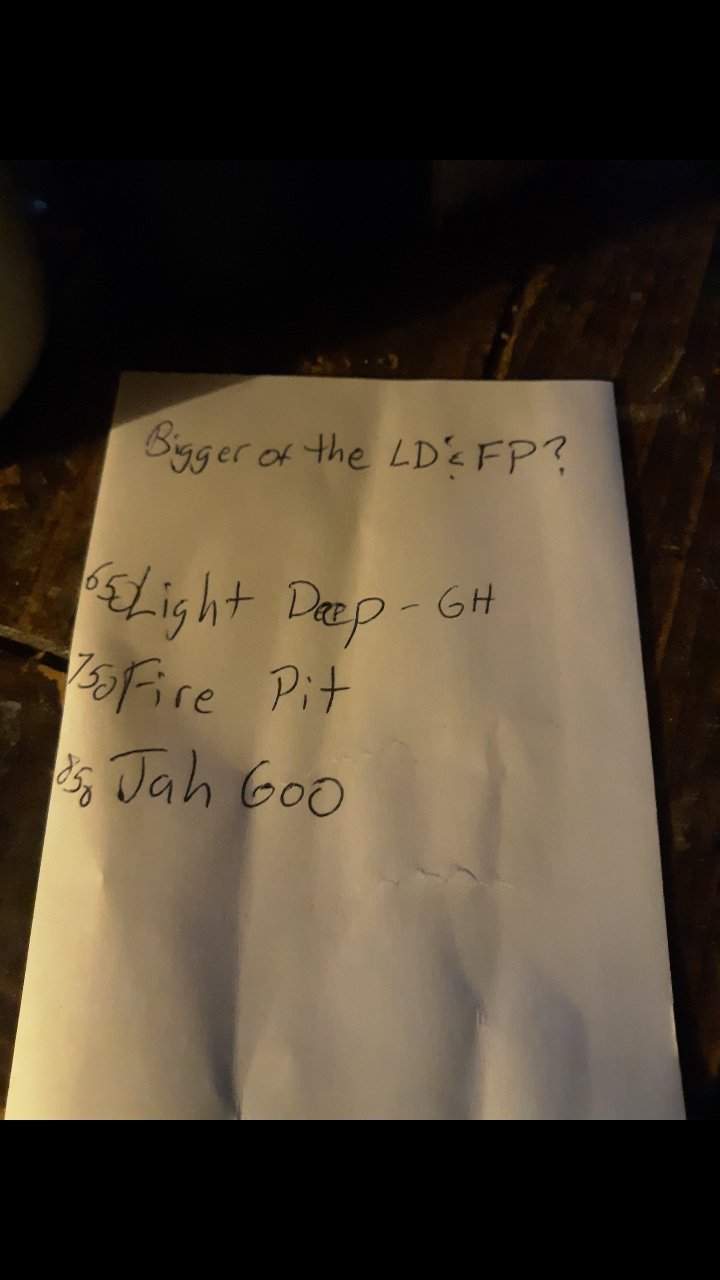 Bigger of the LD & FP?
650 Light Deep - GH
750 Fire Pit
850 Jah Goo